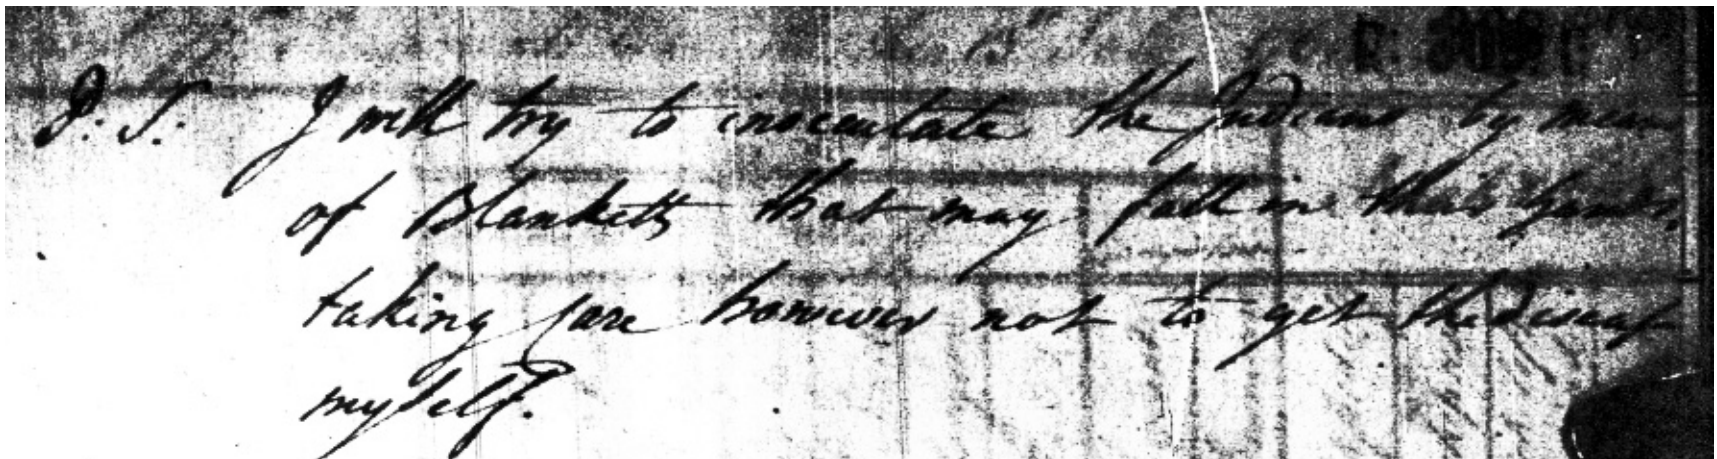 P.S. I will try to inocculate the Indians by means
of Blanketts that may fall in their hands,
taking care however not to get the disease
myself.